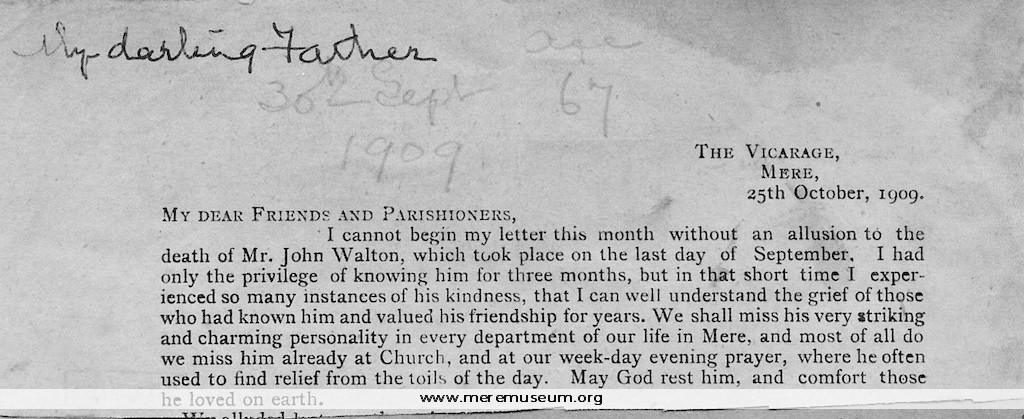 My darling Father
age
30th Sept 67
1909
THE VICARAGE,
MERE,
25th October, 1909.
MY DEAR FRIENDS AND PARISHIONERS,
I cannot begin my letter this month without an allusion to the
death of Mr. John Walton, which took place on the last day of September. I had
only the privilege of knowing him for three months, but in that short time I exper-
ienced so many instances of his kindness, that I can well understand the grief of those
who had known him and valued his friendship for years. We shall miss his very striking
and charming personality in every department of our life in Mere, and most of all do
we miss him already at Church, and at our week-day evening prayer, where he often
used to find relief from the toils of the day. May God rest him, and comfort those
he loved on earth.
www.meremuseum.org